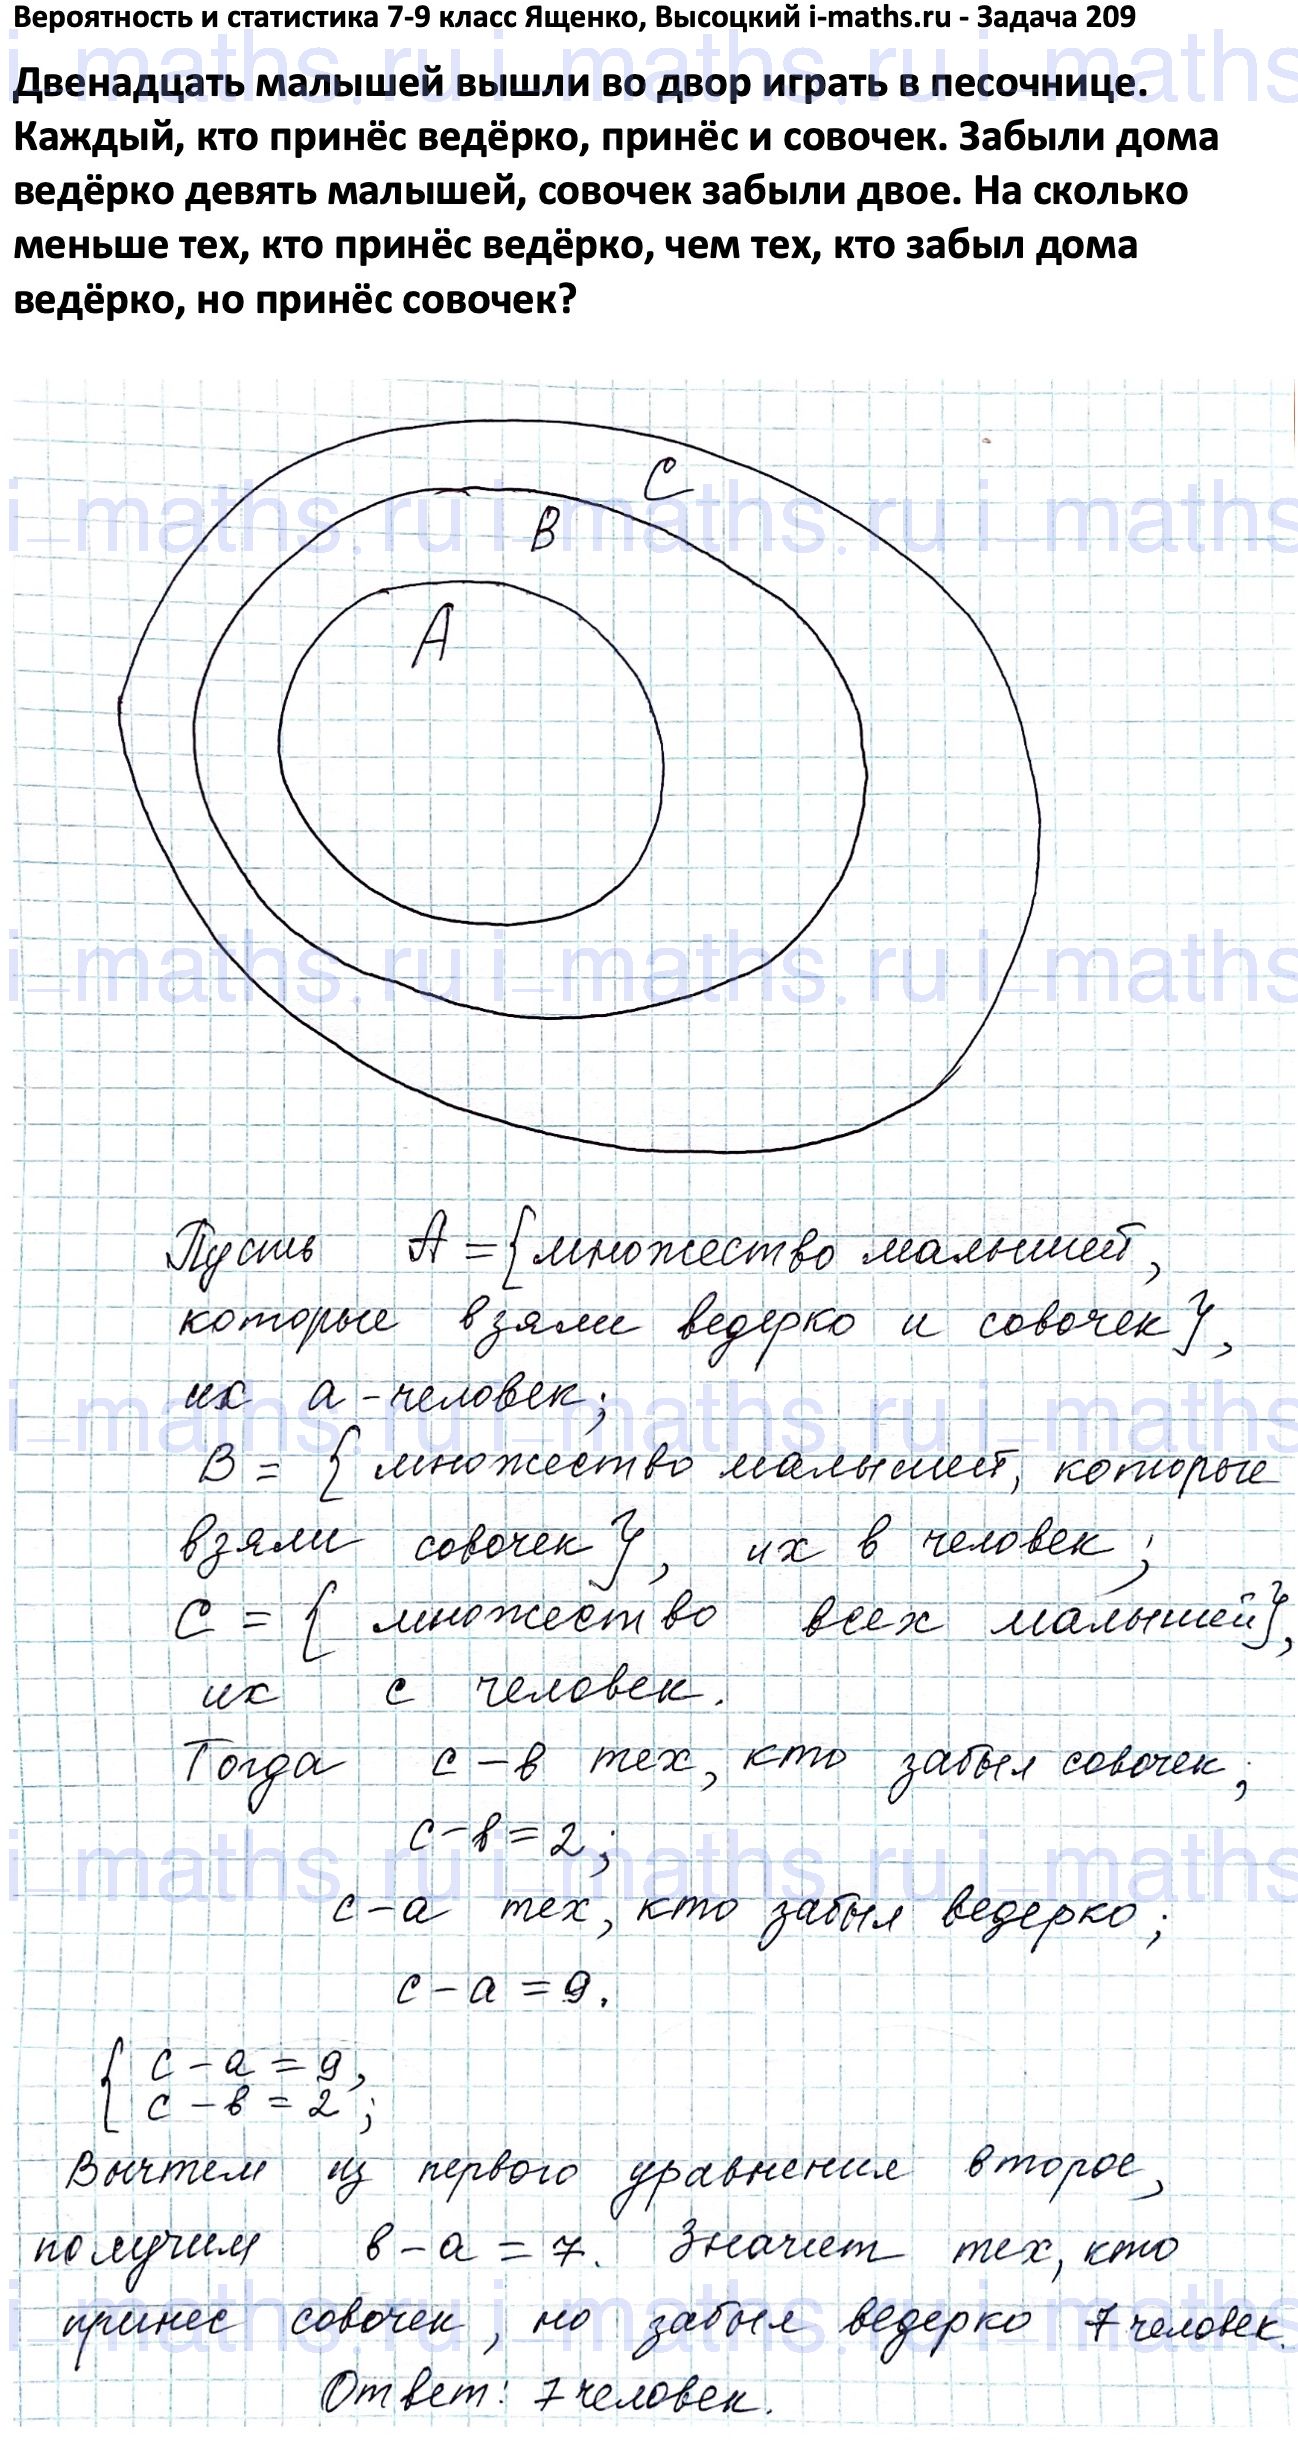 Вероятность и статистика 7-9 класс Ященко, Высоцкий i-maths.ru - Задача 209
Двенадцать малышей вышли во двор играть в песочнице.
Каждый, кто принёс ведёрко, принёс и совочек. Забыли дома
ведёрко девять малышей, совочек забыли двое. На сколько
меньше тех, кто принёс ведёрко, чем тех, кто забыл дома
ведёрко, но принёс совочек?
i-maths.ru i-maths.ru i-maths
C
B
A
i-maths.ru i-maths.ru i-maths
i-maths.ru i-maths.ru i-maths
Пусть A = {множество малышей,
которые взяли ведерко и совочек},
их a - человек;
i-maths.ru i-maths.ru i-maths
B = { множество малышей, которые
взяли совочек}, их в человек;
C = { множество всех малышей},
их с человек.
Тогда с - в тех, кто забыл совочек;
с - в = 2;
i-maths.ru i-maths.ru i-maths
с - a тех, кто забыл ведерко;
с - a = 9.
{ с - a = 9,
с - в = 2;
Вычтем из первого уравнения второе,
получим в - a = 7. Значит тех, кто
принес совочек, но забыл ведерко 7 человек.
i-maths.ru i-maths.ru i-maths
Ответ: 7 человек.